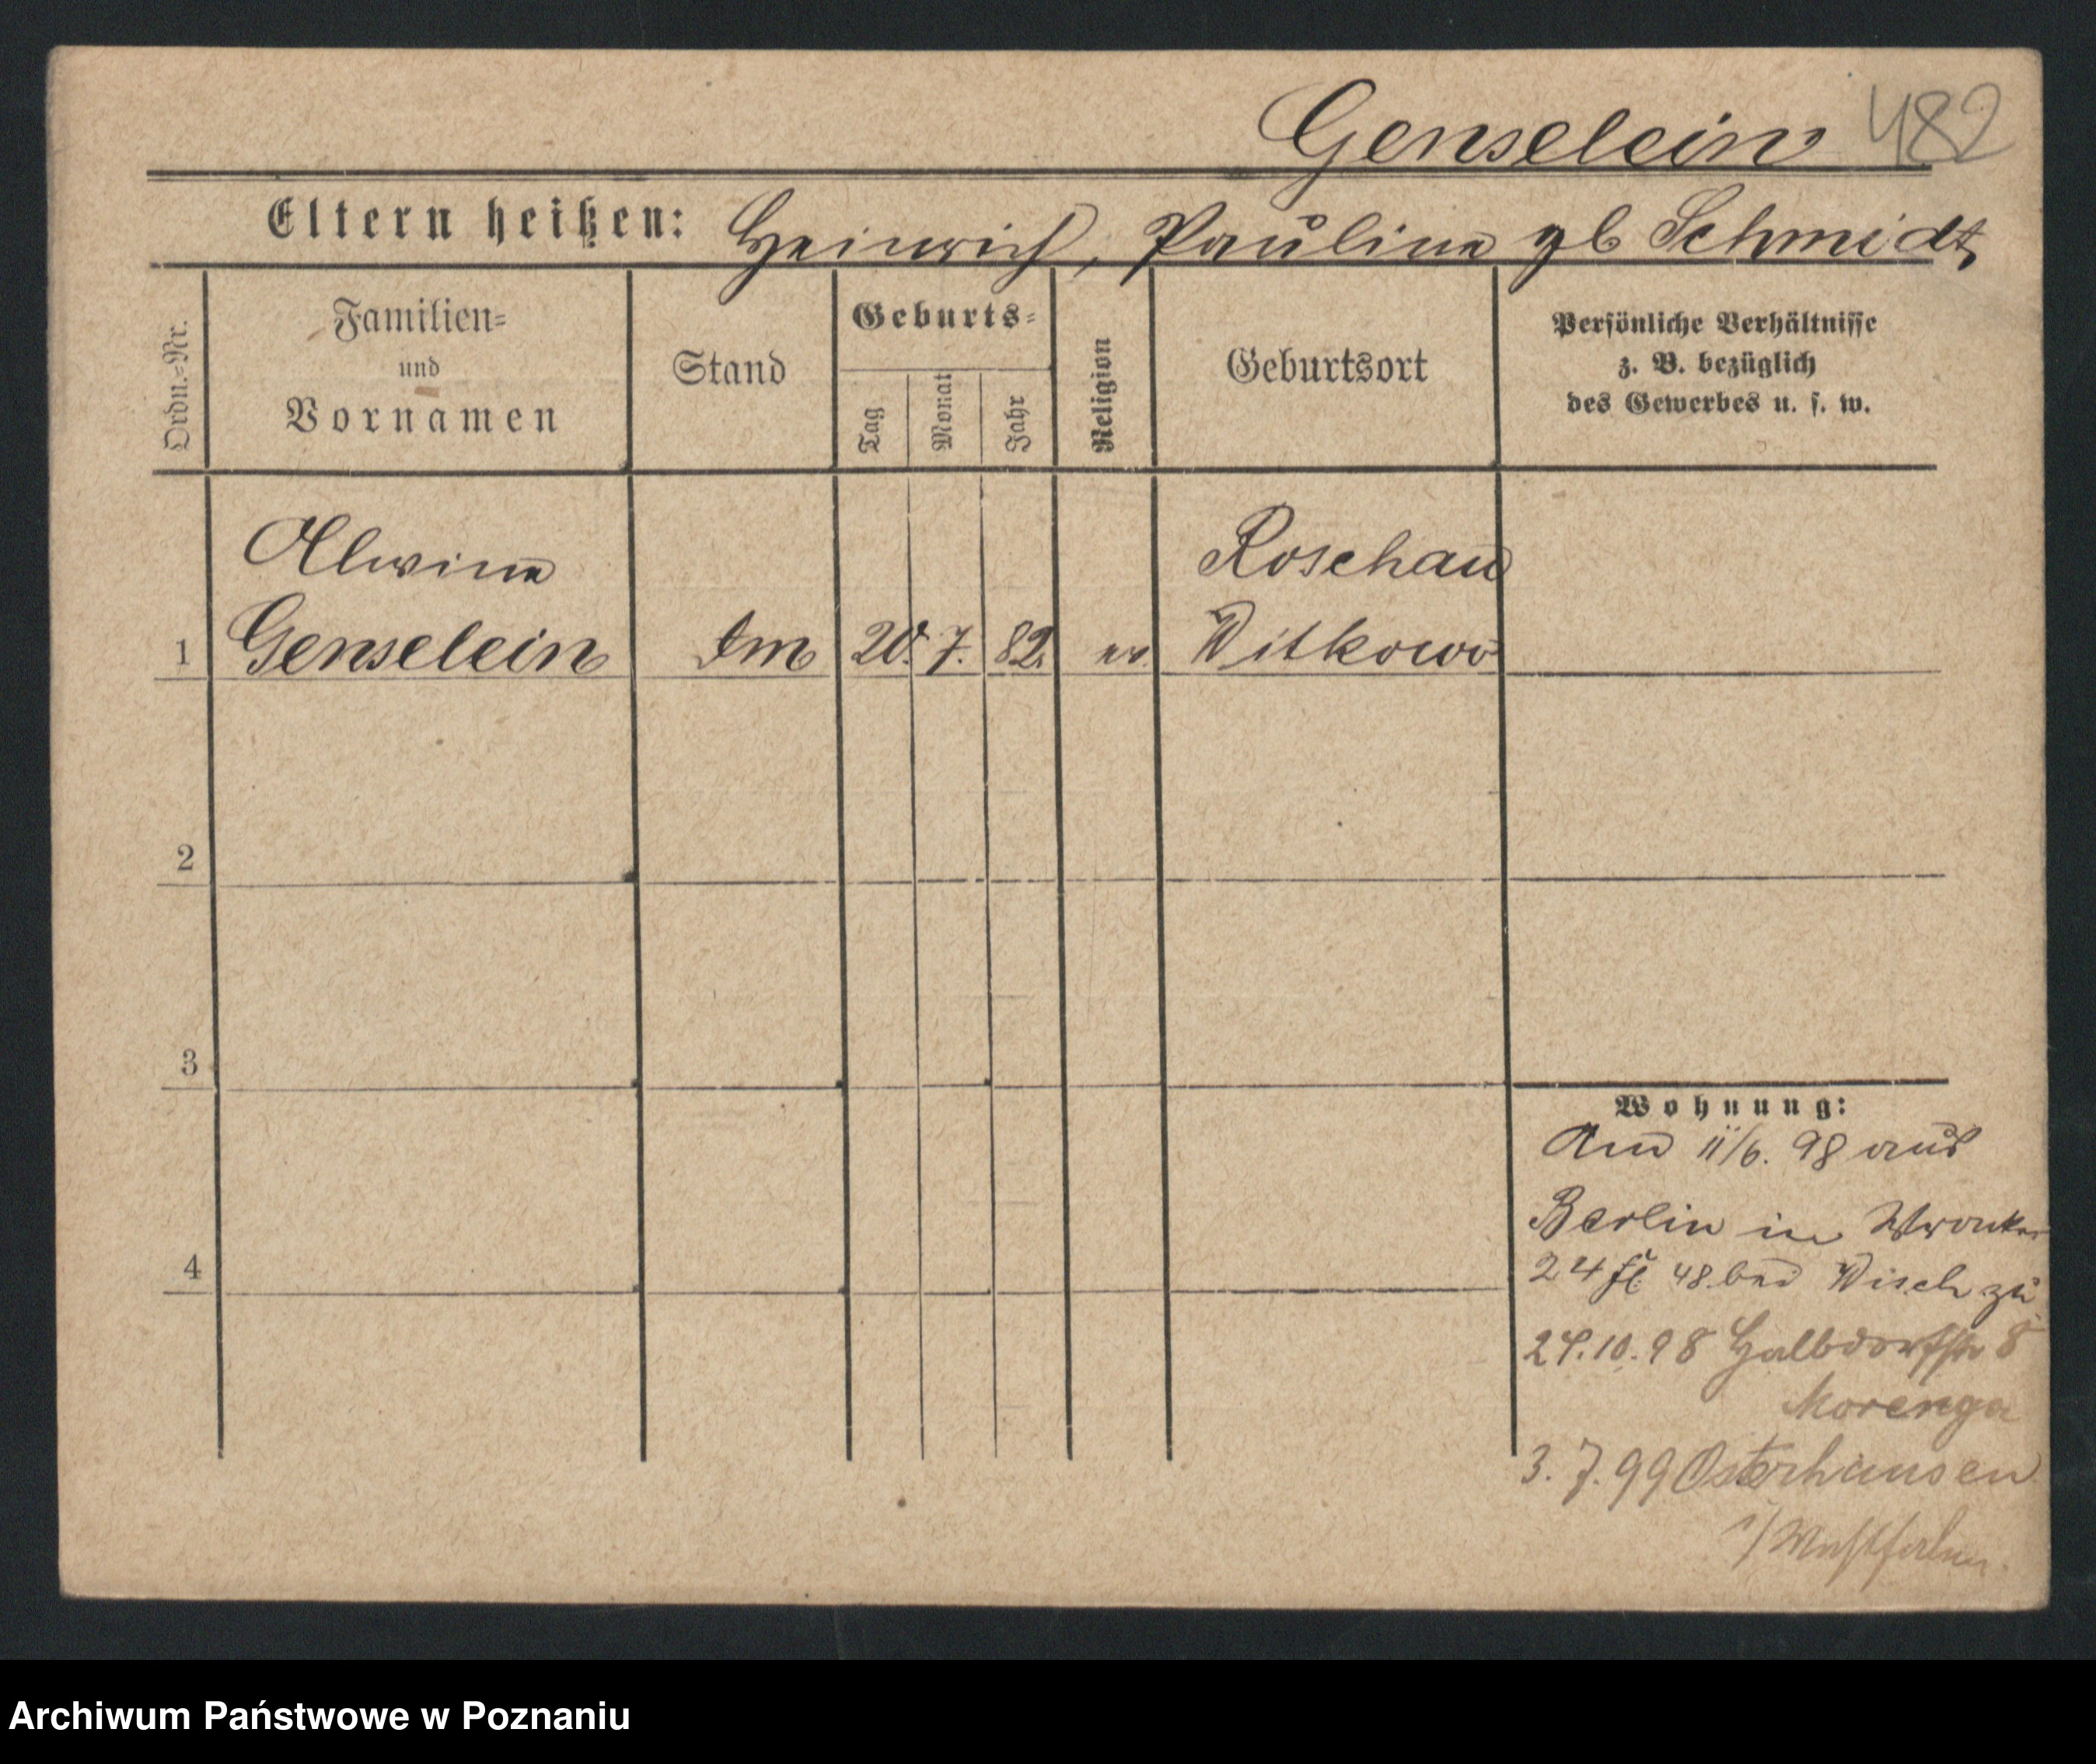 Genselein 482
Eltern heißen: Heinrich, Pauline gb Schmidt
Ordn.-Nr.
Familien-
und
Vornamen
Stand
Geburts-
Tag
Monat
Jahr
Religion
Geburtsort
Persönliche Verhältnisse
z. B. bezüglich
des Gewerbes u. s. w.
Alwine Roschau
1 Genselein 20. 7. 82. ev. Witkowo
2
3
4
Wohnung:
11/6. 98 aus
Berlin in Wronker
24 48 bei Wisch zu
10. 98 Halbdorfstr 8
Morenga
3. 7. 99 Osterhausen
i/Westfalen
Archiwum Państwowe w Poznaniu